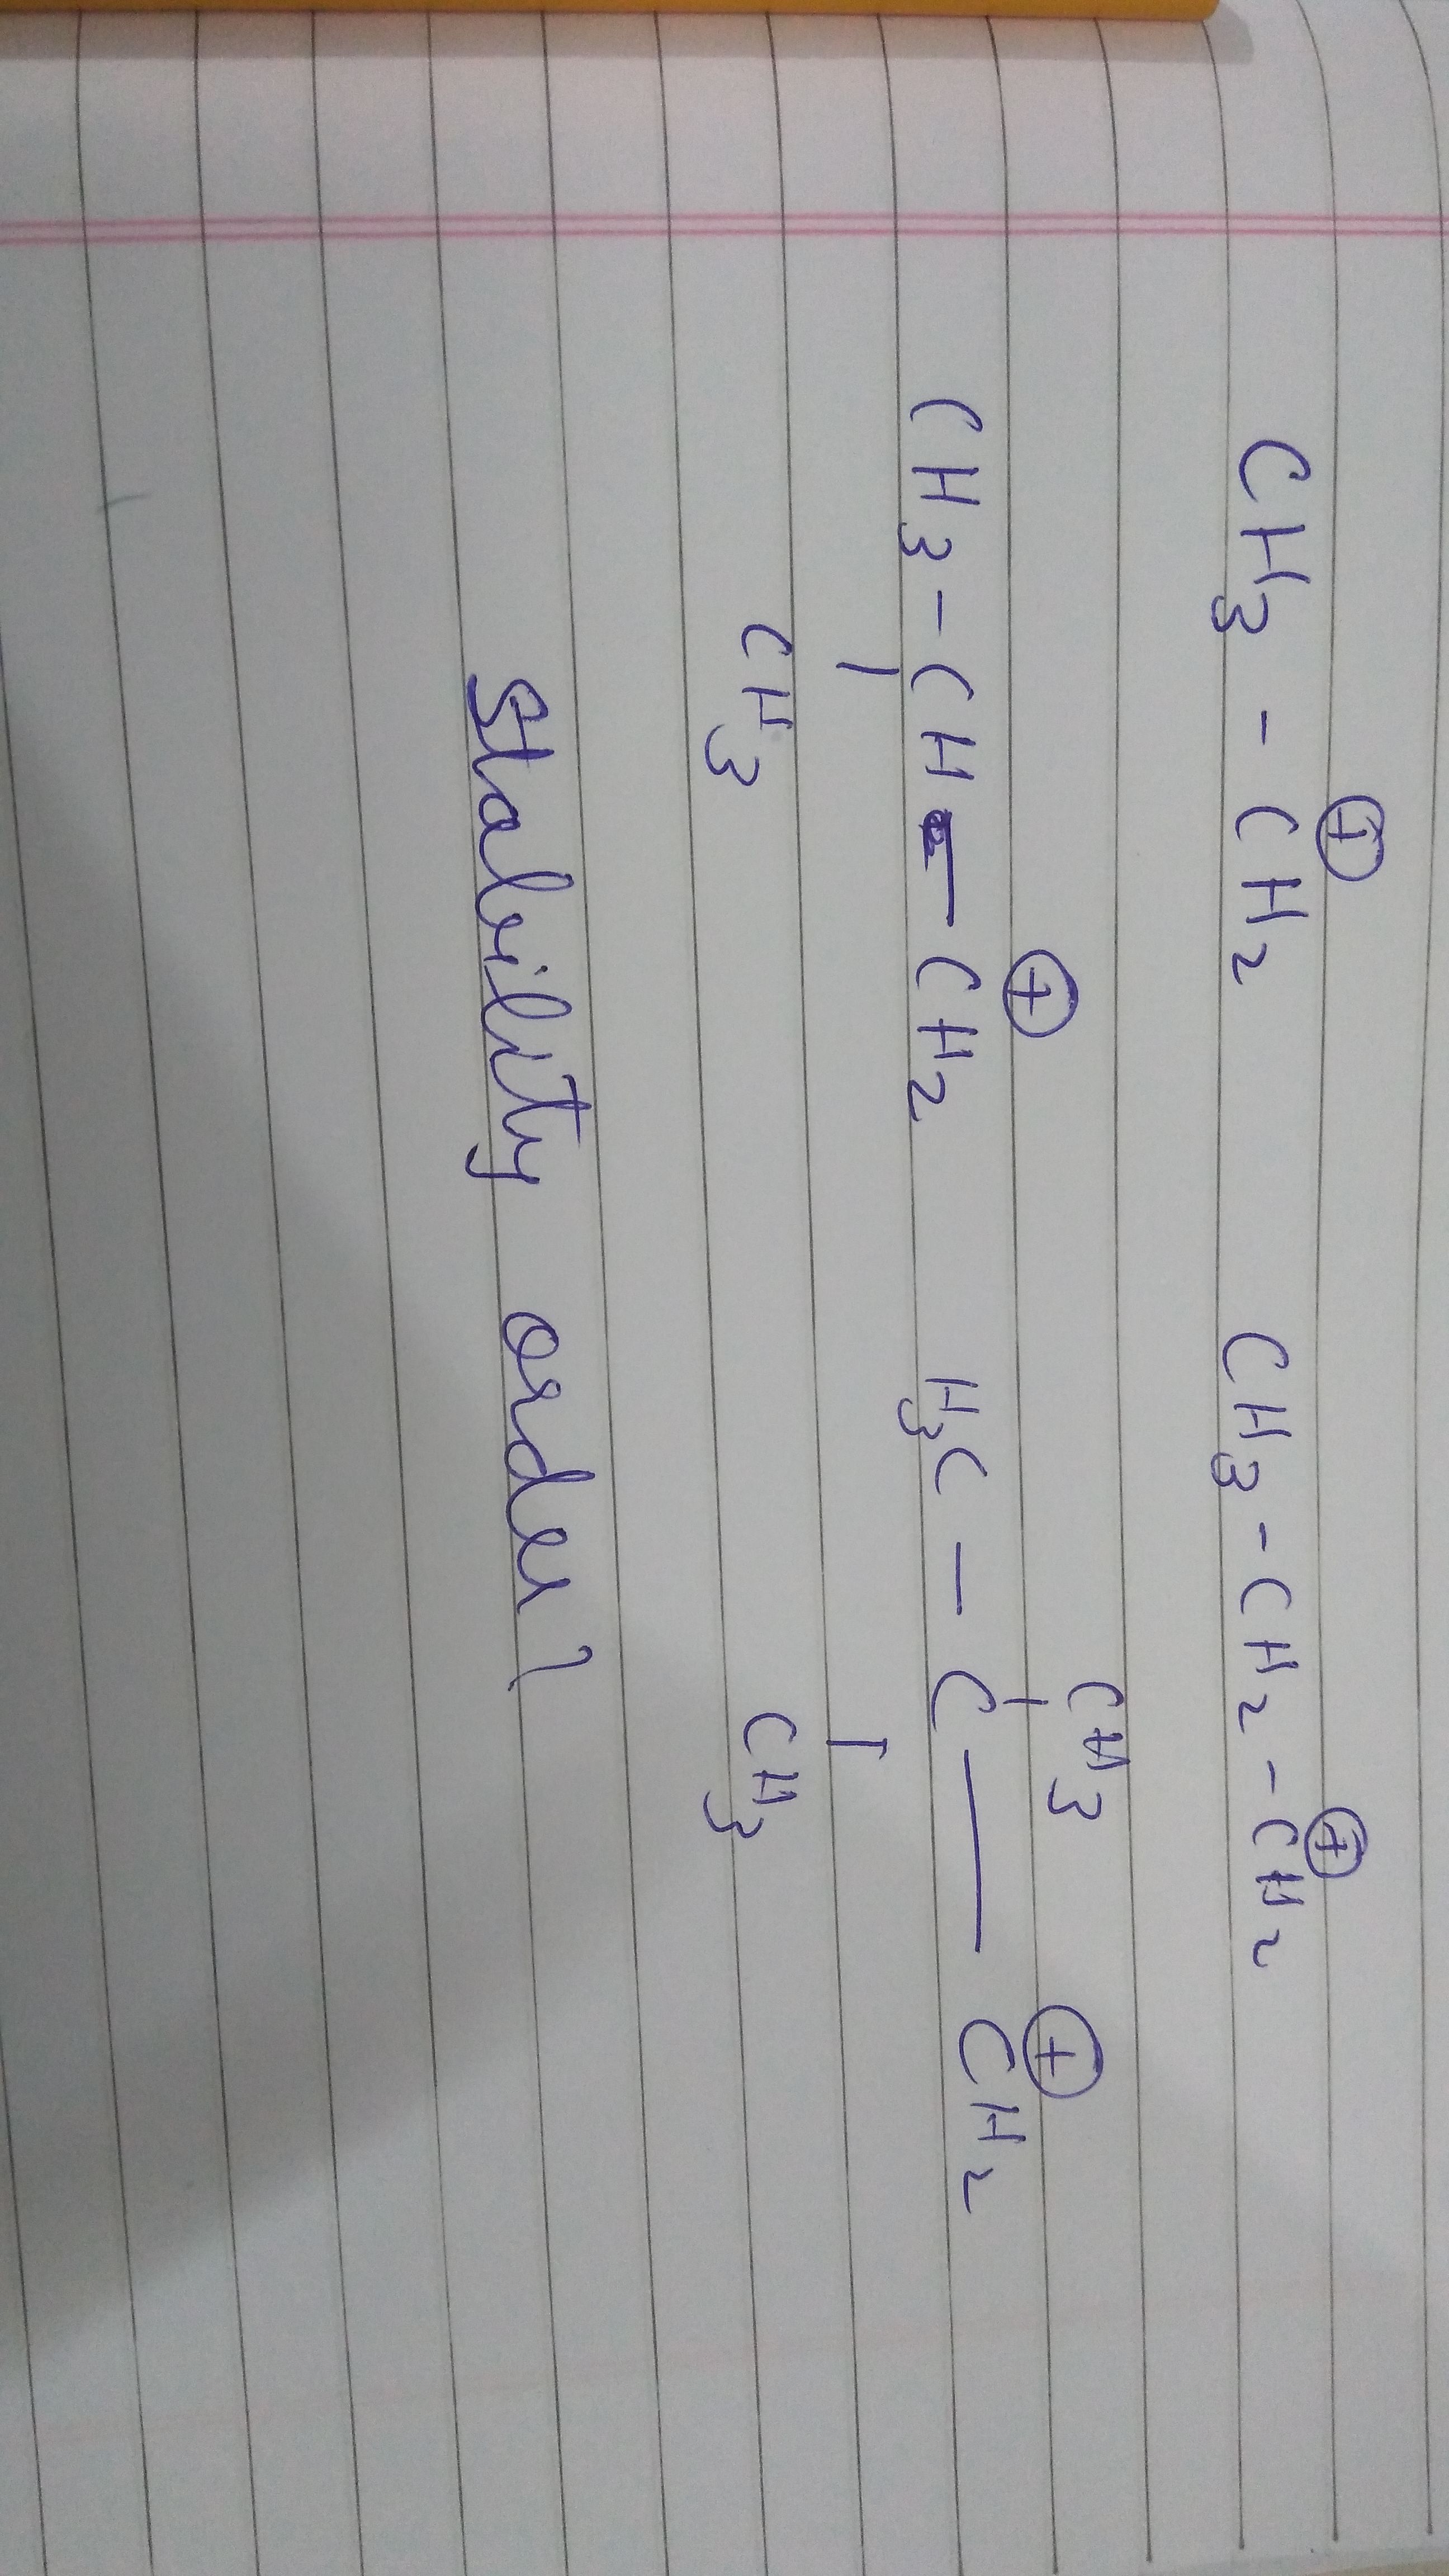 ⊕ ⊕
CH3 - CH2 CH3 - CH2 - CH2
⊕ CH3 ⊕
CH3 - CH - CH2 H3C - C - CH2
CH3 CH3
Stability order?